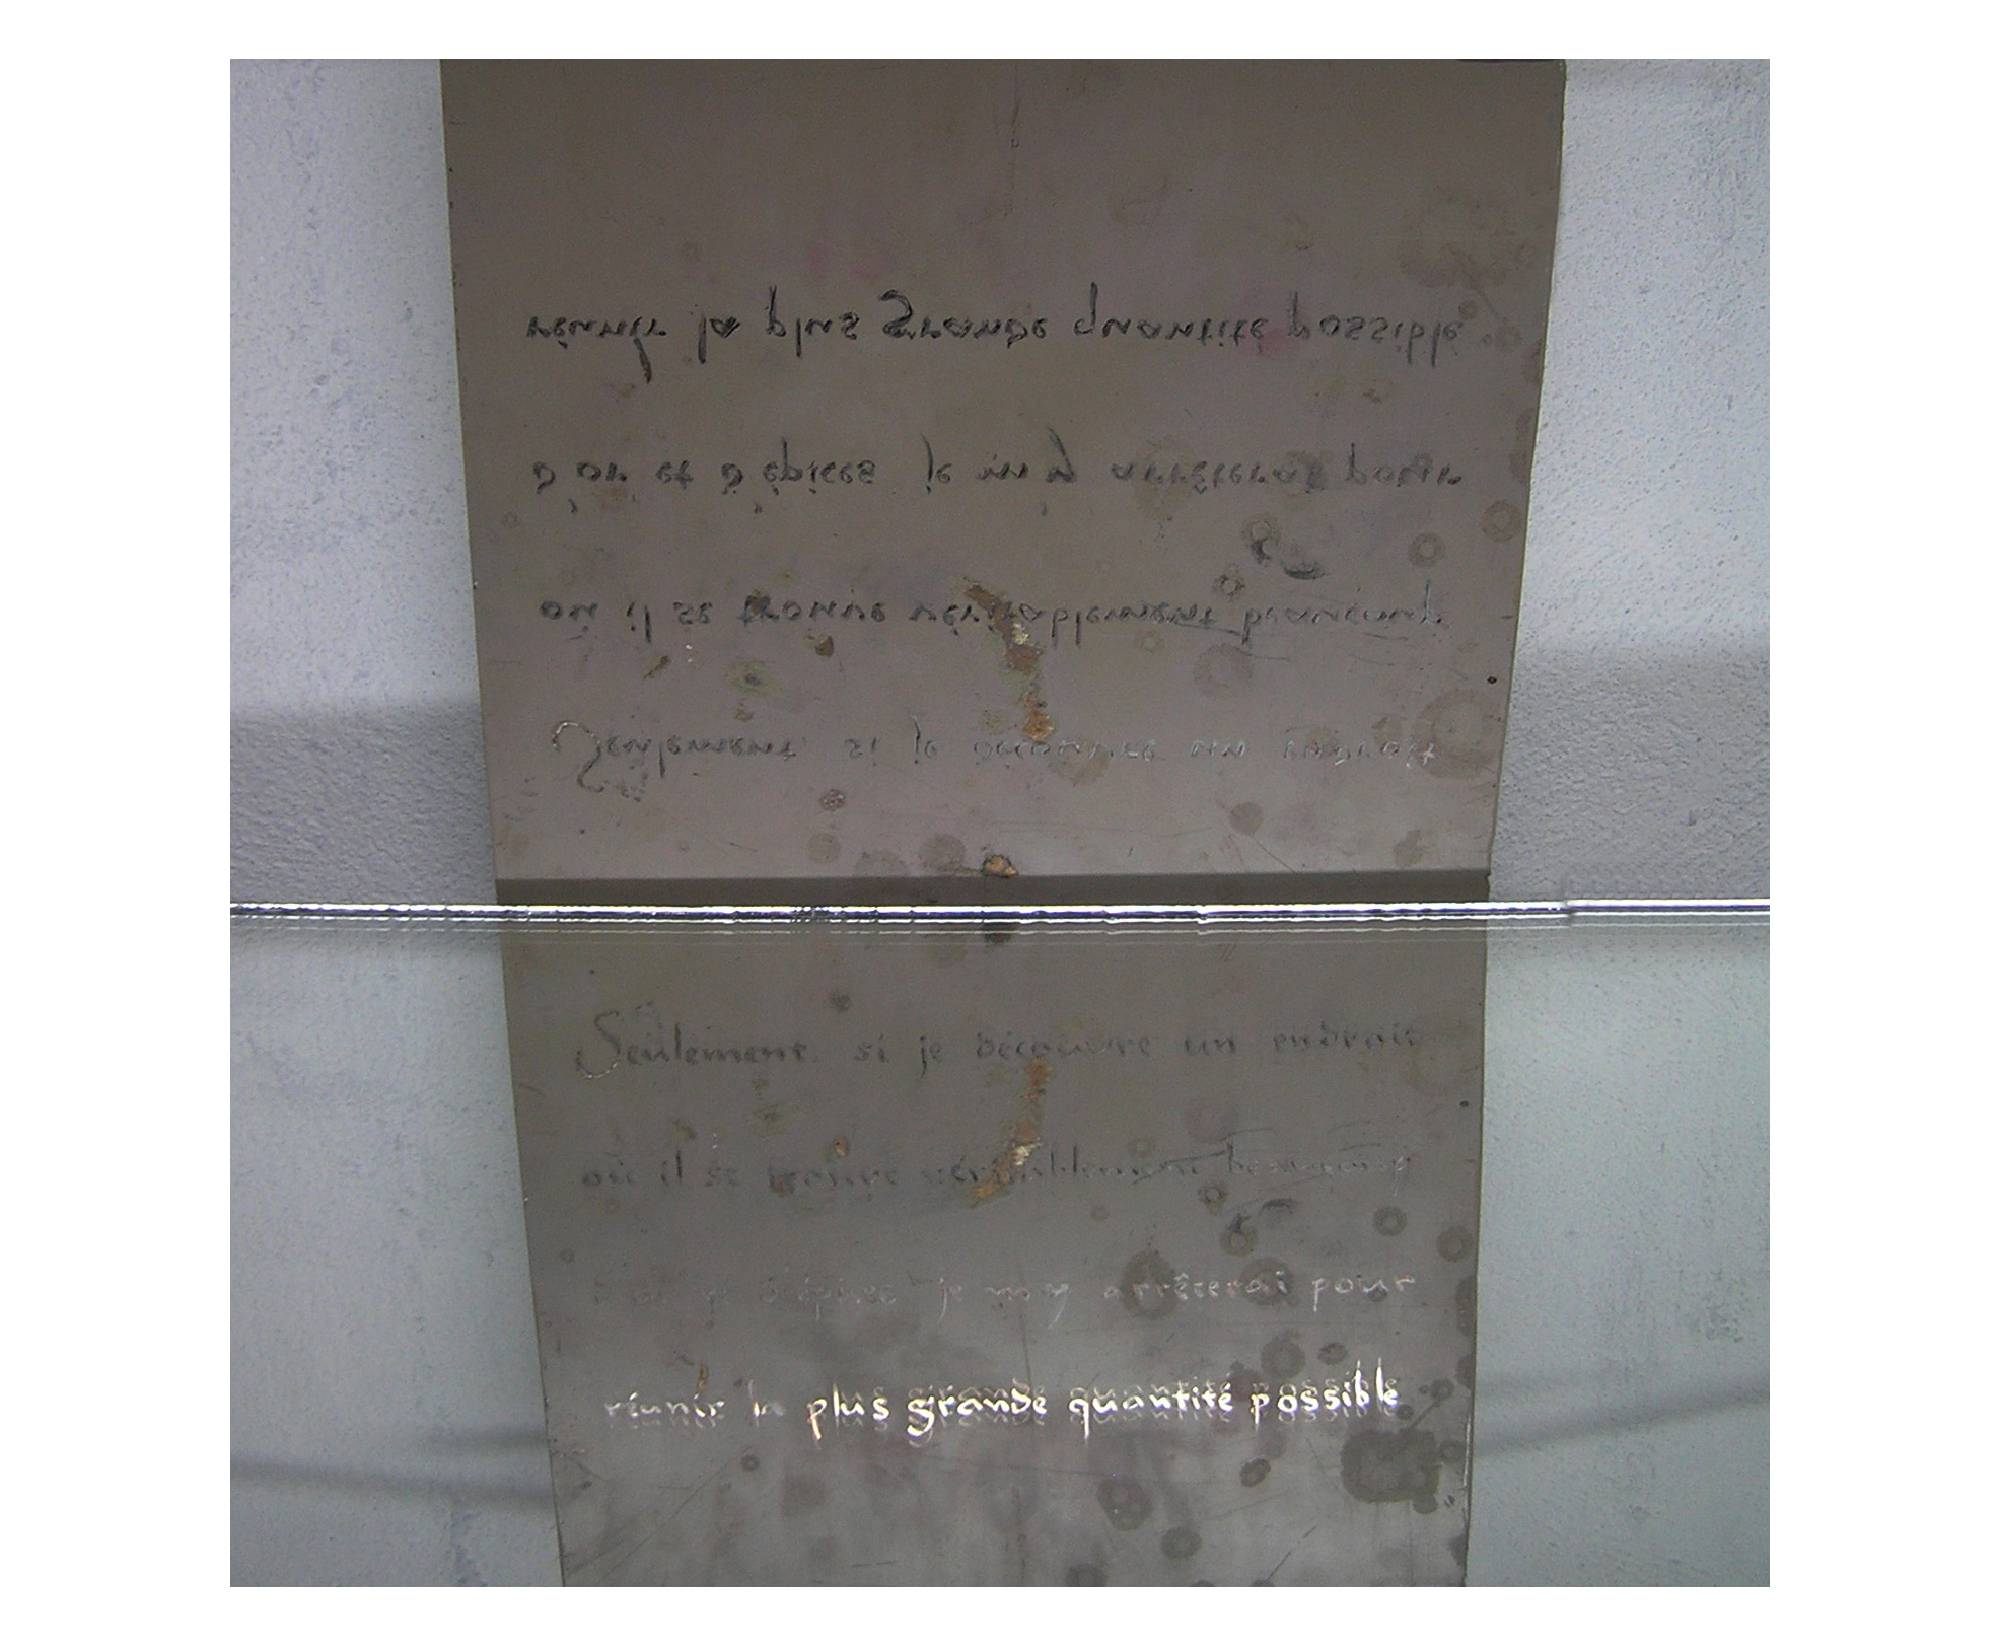 Seulement si je découvre un endroit
où il se trouve véritablement beaucoup
d'or et d'épices je m'y arrêterai pour
réunir la plus grande quantité possible